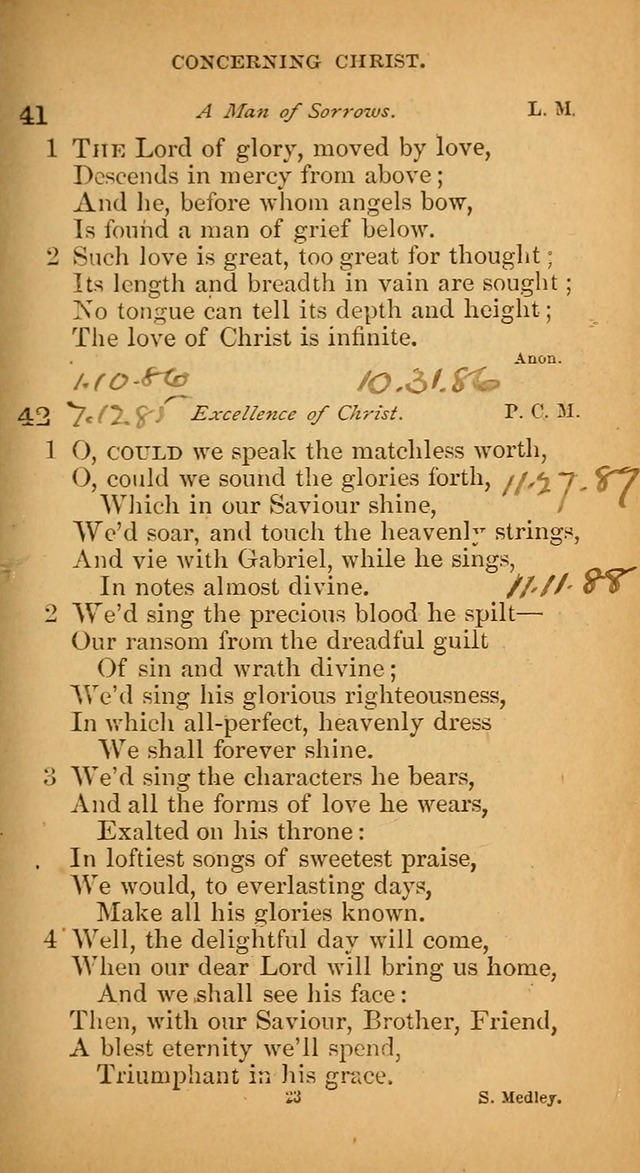 CONCERNING CHRIST.
41 A Man of Sorrows. L. M.
1 THE Lord of glory, moved by love,
Descends in mercy from above;
And he, before whom angels bow,
Is found a man of grief below.
2 Such love is great, too great for thought;
Its length and breadth in vain are sought;
No tongue can tell its depth and height;
The love of Christ is infinite.
Anon.
1.10-86 10.31.86
42 7.12.85 Excellence of Christ. P. C. M.
1 O, COULD we speak the matchless worth,
O, could we sound the glories forth, 11.27.87
Which in our Saviour shine,
We'd soar, and touch the heavenly strings,
And vie with Gabriel, while he sings,
In notes almost divine. 11.11.88
2 We'd sing the precious blood he spilt—
Our ransom from the dreadful guilt
Of sin and wrath divine;
We'd sing his glorious righteousness,
In which all-perfect, heavenly dress
We shall forever shine.
3 We'd sing the characters he bears,
And all the forms of love he wears,
Exalted on his throne:
In loftiest songs of sweetest praise,
We would, to everlasting days,
Make all his glories known.
4 Well, the delightful day will come,
When our dear Lord will bring us home,
And we shall see his face:
Then, with our Saviour, Brother, Friend,
A blest eternity we'll spend,
Triumphant in his grace.
23 S. Medley.